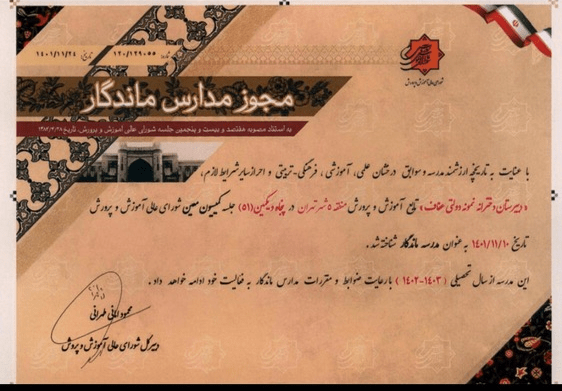 شماره ۱۲۰/۱۲۹۰۵۵
تاریخ ۱۴۰۱/۱۱/۲۴
شورای عالی آموزش و پرورش
مجوز مدارس ماندگار
به استناد مصوبه هفتصد و بیست و پنجمین جلسه شورای عالی آموزش و پرورش، تاریخ ۱۳۸۴/۴/۲۸
با عنایت به تاریخچه ارزشمند مدرسه و سوابق درخشان علمی، آموزشی، فرهنگی-تربیتی و احراز سایر شرایط لازم،
«دبیرستان دخترانه نمونه دولتی عفاف» تابع آموزش و پرورش منطقه ۵ شهر تهران در پنجاه و یکمین (۵۱) جلسه کمیسیون معین شورای عالی آموزش و پرورش
تاریخ ۱۴۰۱/۱۱/۱۰ به عنوان مدرسه ماندگار شناخته شد.
این مدرسه از سال تحصیلی (۱۴۰۳-۱۴۰۲) با رعایت ضوابط و مقررات مدارس ماندگار به فعالیت خود ادامه خواهد داد.
محمود امانی طهرانی
دبیر کل شورای عالی آموزش و پرورش